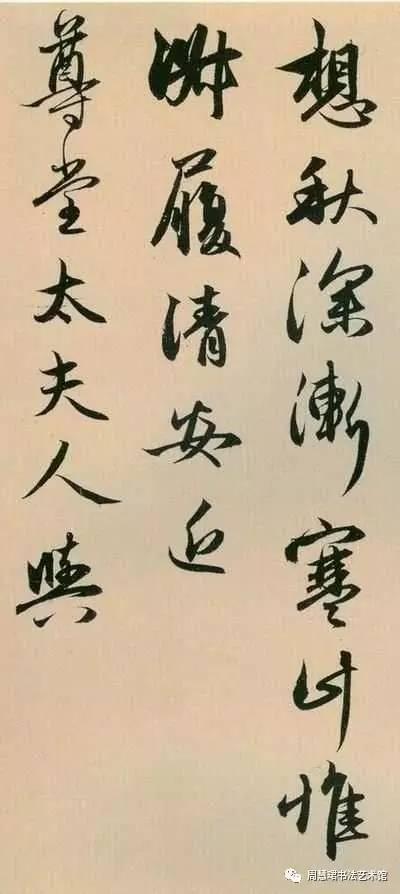 想秋深漸寒計惟
淑履清安近
尊堂太夫人與
周慧珺书法艺术馆